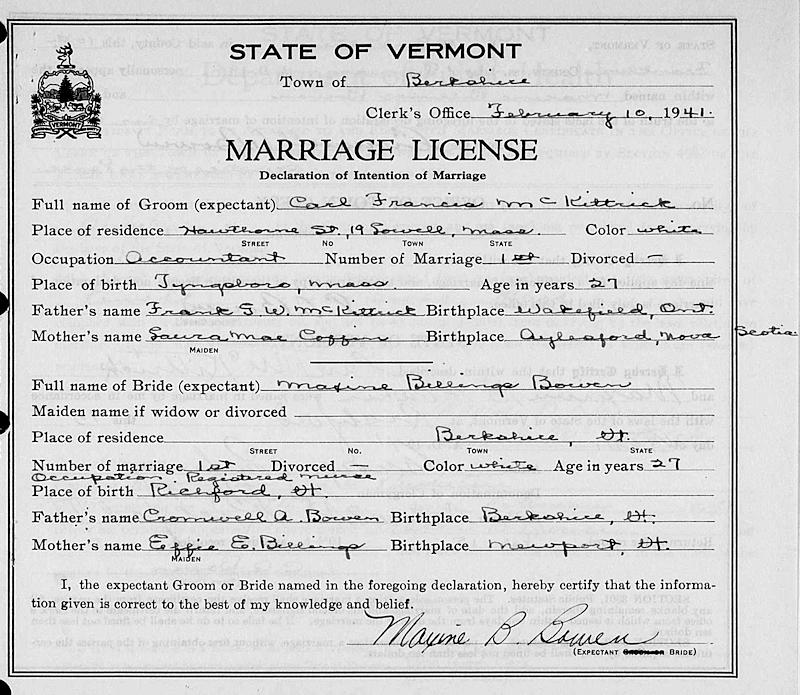 STATE OF VERMONT
Town of Berkshire
Clerk's Office, February 10, 1941.
VERMONT
MARRIAGE LICENSE
Declaration of Intention of Marriage
Full name of Groom (expectant) Carl Francis McKittrick
Place of residence Hawthorne St., 19 Lowell, Mass. Color white
STREET No TOWN STATE
Occupation Accountant Number of Marriage 1st Divorced —
Place of birth Tyngsboro, Mass Age in years 27
Father's name Frank G. W. McKittrick Birthplace Wakefield, Ont.
Mother's name Laura Mae Coffin Birthplace Aylesford, Nova Scotia
MAIDEN
Full name of Bride (expectant) Maxine Billings Bowen
Maiden name if widow or divorced
Place of residence Berkshire, Vt.
STREET No. TOWN STATE
Number of marriage 1st Divorced — Color white Age in years 27
Occupation Registered nurse
Place of birth Richford, Vt.
Father's name Cromwell A. Bowen Birthplace Berkshire, Vt.
Mother's name Effie E. Billings Birthplace Newport, Vt.
MAIDEN
I, the expectant Groom or Bride named in the foregoing declaration, hereby certify that the informa-
tion given is correct to the best of my knowledge and belief.
Maxine B. Bowen
(EXPECTANT GROOM OR BRIDE)